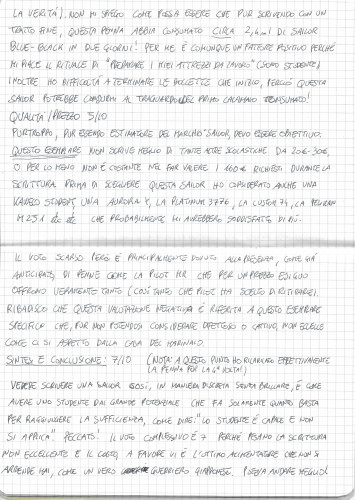 LA VERITÀ). NON MI SPIEGO COME POSSA ESSERE CHE PUR SCRIVENDO CON UN
TRATTO FINE, QUESTA PENNA ABBIA CONSUMATO CIRCA 2,4ml DI SAILOR
BLUE-BLACK IN DUE GIORNI! PER ME È COMUNQUE UN FATTORE POSITIVO PERCHÉ
MI PIACE IL RITUALE DI "PREPARARE I MIEI ATTREZZI DA LAVORO" (SONO STUDENTE)
INOLTRE HO DIFFICOLTÀ A TERMINARE LE BOCCETTE CHE INIZIO, PERCIÒ QUESTA
SAILOR POTREBBE CONDURMI AL TRAGUARDO DEL PRIMO CALAMAIO CONSUMATO!
QUALITÀ/PREZZO 5/10
PURTROPPO, PUR ESSENDO ESTIMATORE DEL MARCHIO SAILOR, DEVO ESSERE OBIETTIVO.
QUESTO ESEMPLARE NON SCRIVE MEGLIO DI TANTE ALTRE SCOLASTICHE DA 20€-30€,
O PER LO MENO NON È COSTANTE NEL FAR VALERE I 100€ RICHIESTI DURANTE LA
SCRITTURA. PRIMA DI SCEGLIERE QUESTA SAILOR HO CONSIDERATO ANCHE UNA
KAWECO STUDENT, UNA AURORA K, LA PLATINUM 3776, LA CUSTOM 74, LA PELIKAN
M251 CHE PROBABILMENTE MI AVREBBERO SODDISFATTO DI PIÙ.
IL VOTO SCARSO PERÒ È PRINCIPALMENTE DOVUTO ALLA PRESENZA, COME GIÀ
ANTICIPATO, DI PENNE COME LA PILOT MR CHE PER UN PREZZO ESIGUO
OFFRONO VERAMENTE TANTO (COSÌ TANTO CHE PILOT HA SCELTO DI RITIRARE).
RIBADISCO CHE QUESTA VALUTAZIONE NEGATIVA È RIFERITA A QUESTO ESEMPLARE
SPECIFICO CHE, PUR NON POTENDOSI CONSIDERARE DIFETTOSO O CATTIVO, NON ECCELLE
COME CI SI ASPETTA DALLA CASA DEL MARINAIO.
SINTESI E CONCLUSIONE: 7/10 (NOTA: A QUESTO PUNTO HO RICARICATO EFFETTIVAMENTE
LA PENNA PER LA 4ª VOLTA!)
VEDERE SCRIVERE UNA SAILOR COSÌ, IN MANIERA DISCRETA SENZA BRILLARE, È COME
AVERE UNO STUDENTE DAL GRANDE POTENZIALE CHE FA SOLAMENTE QUANTO BASTA
PER RAGGIUNGERE LA SUFFICIENZA, COME DIRE: "LO STUDENTE È CAPACE E NON
SI APPLICA". PECCATO! IL VOTO COMPLESSIVO È 7 PERCHÉ PESANO LA SCRITTURA
NON ECCELLENTE E IL COSTO, A FAVORE VI È L'OTTIMO ALIMENTATORE CHE NON SI
ARRENDE MAI, COME UN VERO GUERRIERO GIAPPONESE. POTEVA ANDARE MEGLIO!